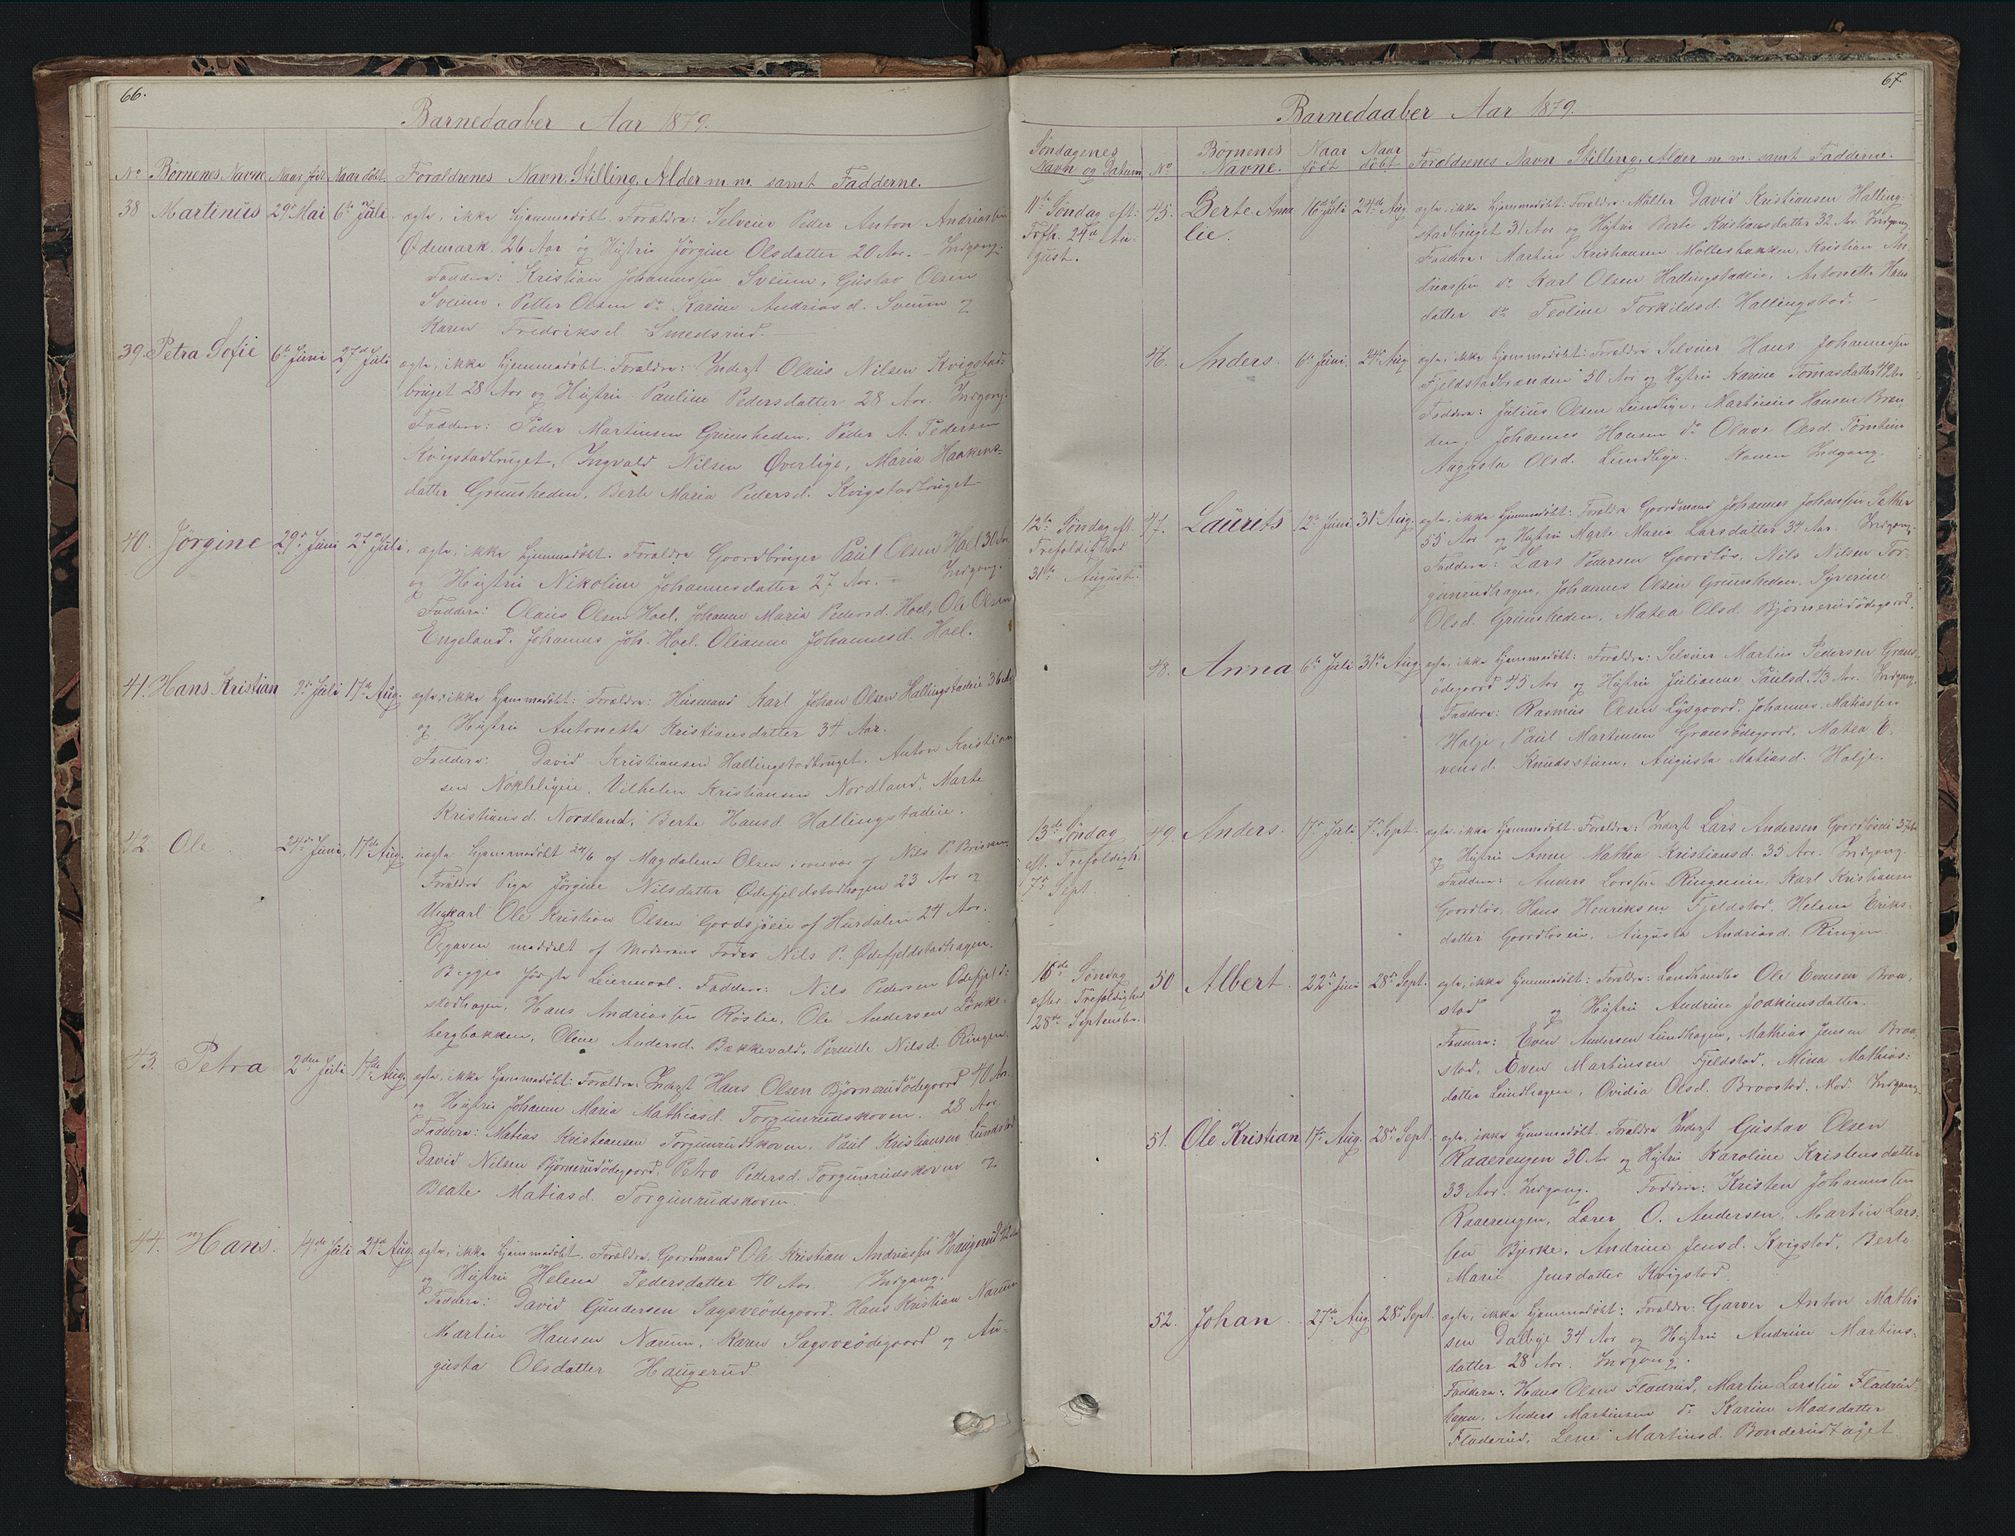 66.
Barnedaaber Aar 1879.
No Børnenes Navne Naar fød Naar døbt. Forældrenes Navn, Stilling, Alder m. m. samt Fadderne.
38 Martinus 29de Mai 6te Juli. ægte, ikke hjemmedøbt. Forældre: Selveier Peder Anton Andreassen
Ødemark, 26 Aar og Hustru Jørgine Olsdatter 20 Aar. – Indgang.
Faddere: Kristian Johannessen Sveum, Gustav Olsen
Sveum, Petter Olsen do Karine Andriasd. Sveum &
Karen Fredriksd. Smedsrud.
39. Petra Sofie 6te Juni 27de Juli ægte, ikke hjemmedøbt. Forældre: Inderst Olaus Nilsen Kvigstad-
bruget 28 Aar og Hustru Pauline Pedersdatter 28 Aar. Indgang.
Faddere: Peder Martinsen Grimsheden, Peder A. Pedersen
Kvigstadbruget, Ingvald Nilsen Øverlige, Maria Haakens-
datter Grimsheden, Berte Maria Pedersd. Kvigstadbruget
40. Jørgine 29de Juni 27de Juli, ægte, ikke hjemmedøbt. Forældre Gaardbruger Paul Olsen Hoel 30 Aar
og Hustru Nikoline Johannesdatter 27 Aar. – Indgang.
Faddere: Olaus Olsen Hoel, Johanne Maria Pedersd. Hoel, Ole Olsen
Engeland, Johannes Joh. Hoel. Olianne Johannesd. Hoel.
41. Hans Kristian 9de Juli 17de Aug. ægte, ikke hjemmedøbt: Forældre: Husmand Karl Johan Olsen Hallingstadeie 36 Aar
og Hustru Antonette Kristiansdatter 34 Aar.
Faddere: David Kristiansen Hallingstadbruget, Anton Kristian
sen Nøkleligeie, Vilhelm Kristiansen Nordland, Marte
Kristiansd. Nordland, Berte Hansd. Hallingstadeie.
42 Ole. 24de Juni, 17de Aug. uægte hjemmedøbt 24/6 af Magdalena Olsen, i nærvær af Nils P.
Forældre Pige Jørgine Nilsdatter Ødefjeldstadhagen 23 Aar og
Ungkarl Ole Kristian Olsen Gaardsjøeie af Hurdalen 24 Aar.
Opgaven meddelt af Moderens Fader Nils P. Ødefjeldstadhagen.
Begges første Leiermaal. Faddere: Nils Pedersen Ødefjeld-
stadhagen, Hans Andriassen Røslie, Ole Andersen Løkke-
bergbakken, Olene Andersd. Bækkevald, Pernille Nilsd. Ringen.
43. Petra 2den Juli 17de Aug. ægte, ikke hjemmedøbt: Forældre: Inderst Hans Olsen Bjørnerudødegaard 40 Aar
og Hustru Johanne Maria Mathiasd. Torgunrudskoven. 28 Aar.
Faddere: Matias Kristiansen Torgunrudskoven, Paul Kristiansen Lundstad
David Nilsen Bjørnerudødegaard, Petra Pedersd. Torgunrudskoven &
Beate Matiasd. Torgunrudskoven.
44. Hans. 4de Juli 24de Aug. ægte, ikke hjemmedøbt. Forældre. Gaardmand Ole Kristian Andriassen Haugerud 42 Aar
og Hustru Helena Pedersdatter 40 Aar. Indgang.
Faddere: David Gundersen Sagsveødegaard. Hans Kristian Narum
Martin Hansen Narum, Karen Sagsveødegaard og Au-
gusta Olsdatter Haugerud
67.
Barnedaaber Aar 1879.
Søndagenes Navn og Datum No Børnenes Navne. Naar født Naar døbt Forældrenes Navn Stilling, Alder m m. samt Fadderne.
11te Søndag eft. 45. Berte Ama 16de Juli 24de Aug ægte, ikke hjemmedøbt: Forældre: Møller David Kristiansen Halling-
Trefh. 24de Au- lie. stadbruget 31 Aar og Hustru Berte Kristiansdatter 32 Aar. Indgang.
gust. Faddere: Martin Kristiansen Møllerbakken, Kristian An-
dreassen do Karl Olsen Hallingstadeie, Antonette Hans
datter do Teoline Torkildsd. Hallingstad. –
46. Anders. 6te Juni, 24de Aug ægte, ikke hjemmedøbt: Forældre Selveier Hans Johannessen
Fjeldstadbrænden 50 Aar og Hustru Karine Tomasdatter 49 Aar
Faddere: Julius Olsen Lundlige, Martinius Hansen Bræn
den, Johannes Hansen do Olave Olsd.
Augusta Olsd. Lundlige. Konen Indgang.
12te Søndag eft. 47. Laurits 12te Juni 31te Aug. ægte, ikke hjemmedøbt: Forældre Gaardmand Johannes Johansen Sether
Trefoldighed 55 Aar og Hustru Marte Maria Larsdatter 34 Aar. Indgang.
31te August. Faddere: Lars Pedersen Gaardløs, Nils Nilsen Tor-
gunrudhagen, Johannes Olsen Grimsheden, Syverine
Olsd. Grimsheden, Matea Olsd. Bjørnerudødegaard.
48. Anna 6te Juli 31te Aug. ægte, ikke hjemmedøbt: Forældre: Selveier Martin Pedersen Grans-
ødegaard 45 Aar og Hustru Julianne Paulsd. 43 Aar. Indgang.
Faddere: Rasmus Olsen Lysgaard. Johannes Matiassen
Holje, Paul Martinsen Gransødegaard, Matea E-
vensd. Knudsstuen, Augusta Matiasd. Holje.
13de Søndag 49. Anders. 17de Juli 7de Sept. ægte, ikke hjemmedøbt: Forældre: Inderst Lars Andersen Gaardløseie 37 Aar
eft. Trefoldigh. og Hustru Anne Mathea Kristiansd. 35 Aar. Indgang.
7de Sept. Faddere: Anders Larssen Ringeneie, Karl Kristiansen
Gaardløs, Hans Henriksen Fjeldstad, Helene Eriks-
datter Gaardløseie, Augusta Andriasd. Ringen
16de Søndag 50 Albert. 22de Juni 28de Sept. ægte, ikke hjemmedøbt: Forældre: Landhandler Ole Evensen Braa
efter Trefoldighed stad og Hustru Andrine Joakimsdatter.
28de September. Faddere: Even Andersen Lundhagen, Mathias Jensen Braa-
stad, Even Martinsen Fjeldstad, Mina Mathias-
datter Lundhagen, Ovidia Olsd. Braastad. Mod. Indgang.
51. Ole Kristian 17de Aug. 28de Sept. ægte, ikke hjemmedøbt. Forældre Inderst Gustav Olsen
Raaerengen 30 Aar og Hustru Karoline Kristensdatter
33 Aar. Indgang. Faddere: Kristen Johannessen
Raaerengen, Lærer O. Andersen, Martin Lars-
sen Bjerke, Andrine Jensd. Kvigstad, Berte
Marie Jensdatter Kvigstad.
52. Johan. 27de Aug. 28de Sept. ægte, ikke hjemmedøbt: Forældre: Garver Anton Mathi
sen Dalbye 34 Aar og Hustru Andrine Martins-
datter 28 Aar. Indgang.
Faddere: Hans Olsen Fladrud, Martin Larssen Fladrud-
hagen, Anders Martinsen do Karine Madsdatter
Fladerud, Lene Martinsd. Bonderudtaget